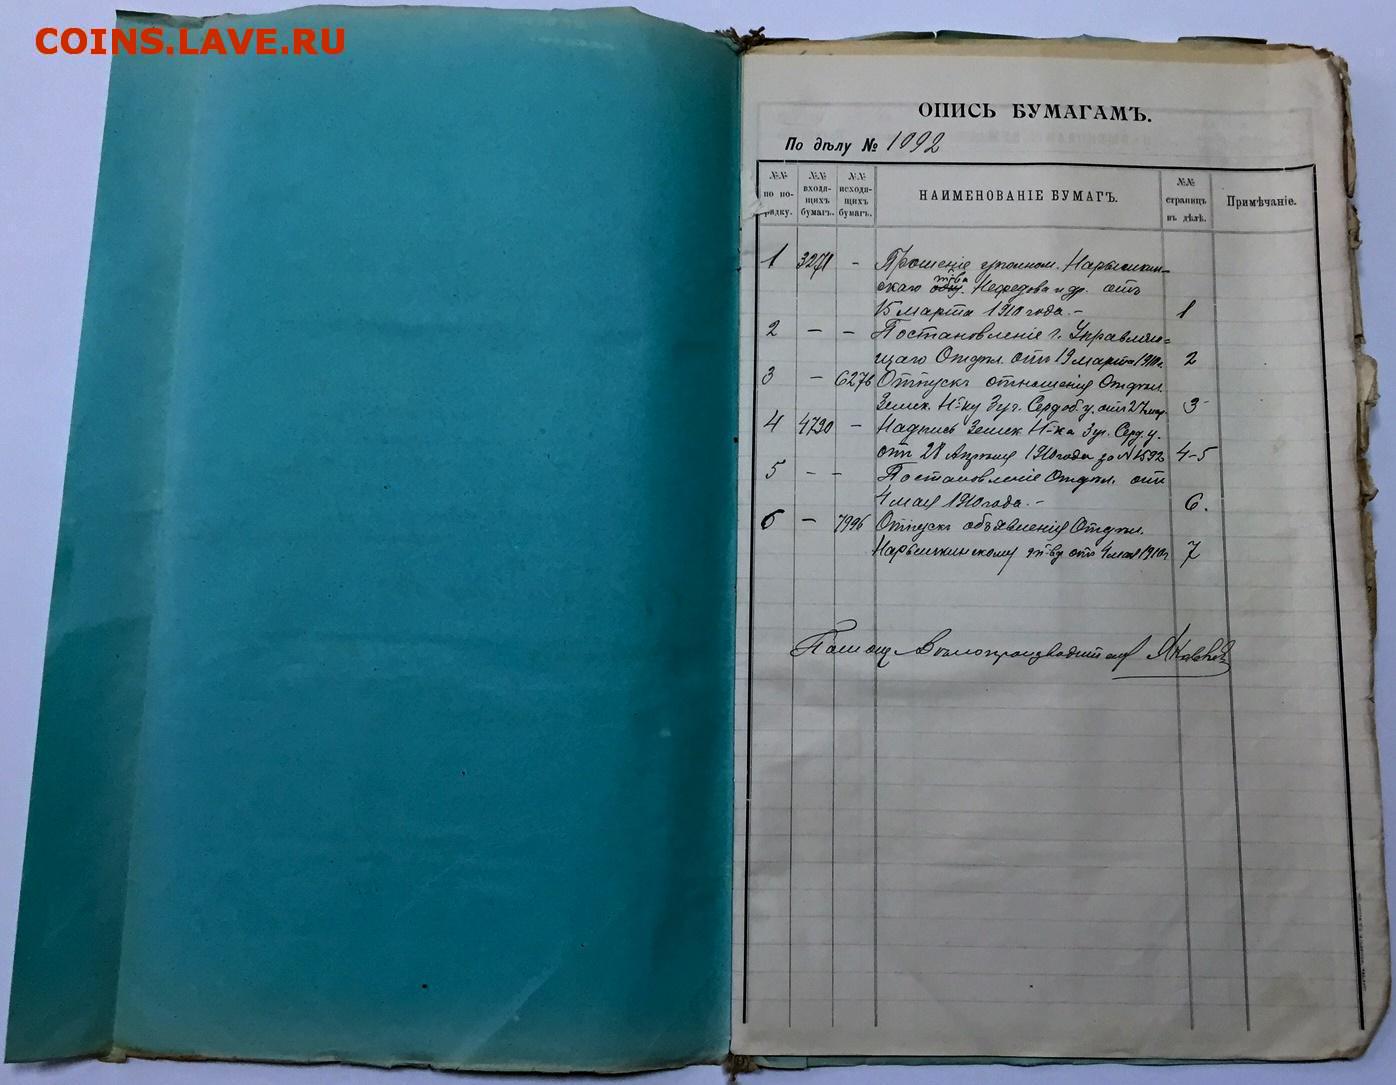 COINS.LAVE.RU
ОПИСЬ БУМАГАМЪ.
По дѣлу № 1092
№№ по по-рядку.
№№ входя-щихъ бумагъ.
№№ исходя-щихъ бумагъ.
НАИМЕНОВАНІЕ БУМАГЪ.
№№ страницъ въ дѣлѣ.
Примѣчаніе.
1 3271 - Прошеніе уполном. Нарышкин-
скаго т-ва Нефедова и др. отъ
15 марта 1910 года. - 1
2 - - Постановленіе г. Управляю=
щаго Отдѣл. отъ 19 марта 1910г. 2
3 - 6276 Отпускъ отношенія Отдѣл.
Земск. Н-ку 3 уч. Сердоб. у. отъ 27 мар. 3
4 4730 - Надпись Земск Н-ка 3 уч. Серд. у.
отъ 28 Апрѣля 1910 года за № 1592 4-5
5 - - Постановленіе Отдѣл. отъ
4 мая 1910 года. - 6.
6 - 7996 Отпускъ объявленія Отдѣл.
Нарышкинскому т-ву отъ 4 мая 1910г 7
Помощ Дѣлопроизводителя